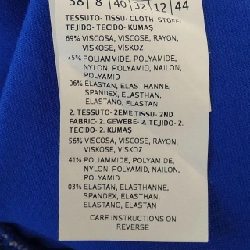 38/ 8 | 40 | 32 | 12 | 44
TESSUTO- TISSU- CLOTH STOFF
TEJIDO- TECIDO- KUMAŞ
69% VISCOSA, VISCOSE, RAYON,
VISKOSE, VISKOZ
POLIAMMIDE, POLYAMIDE,
NYLON, POLYAMID, NAILON,
POLYAMID
06% ELASTAN, ELASTHANNE,
SPANDEX, ELASTHAN,
ELASTANO, ELASTAN
2. TESSUTO- 2EMETISSU- 2ND
FABRIC- 2. GEWEBE- 2.TEJIDO- 2.
TECIDO- 2. KUMAŞ
56% VISCOSA, VISCOSE, RAYON,
VISKOSE, VISKOZ
41% POLIAMMIDE, POLYAMIDE,
NYLON, POLYAMID, NAILON,
POLYAMID
03% ELASTAN, ELASTHANNE,
SPANDEX, ELASTHAN,
ELASTANO, ELASTAN
CARE INSTRUCTIONS ON
REVERSE